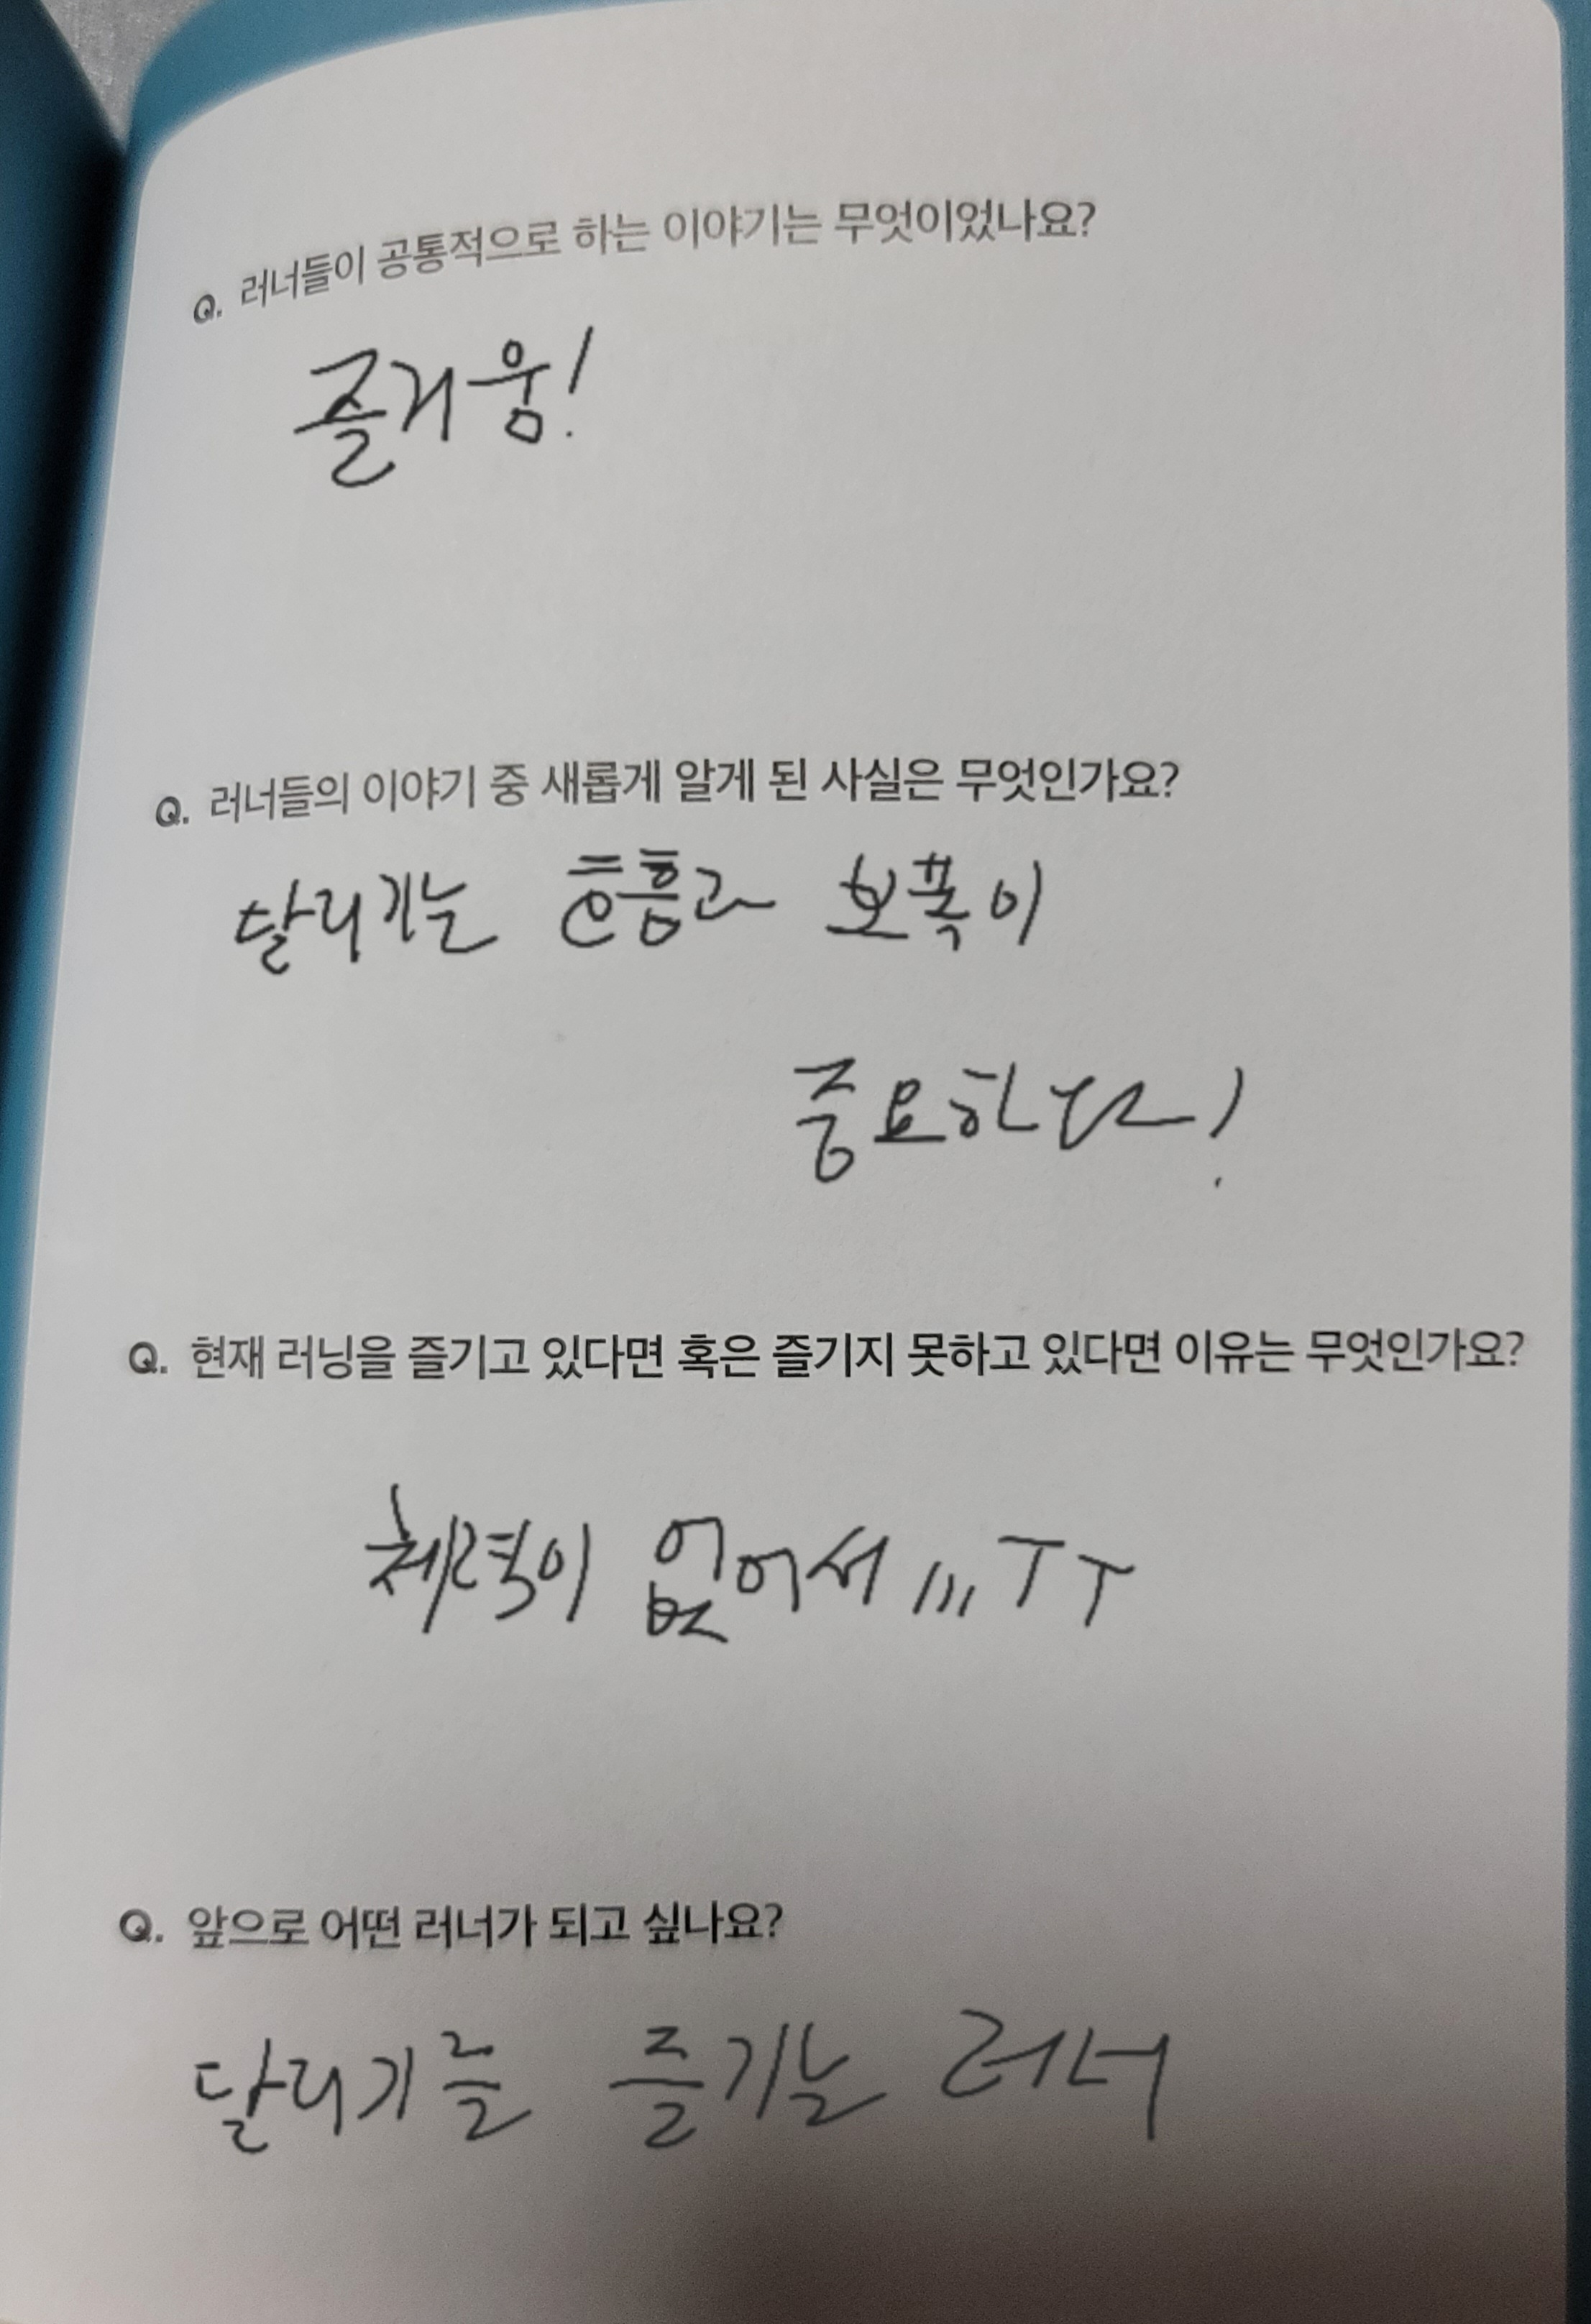 Q. 러너들이 공통적으로 하는 이야기는 무엇이었나요?
즐거움!
Q. 러너들의 이야기 중 새롭게 알게 된 사실은 무엇인가요?
달리기는 호흡과 보폭이
중요하다!
Q. 현재 러닝을 즐기고 있다면 혹은 즐기지 못하고 있다면 이유는 무엇인가요?
체력이 없어서,,,ㅜㅜ
Q. 앞으로 어떤 러너가 되고 싶나요?
달리기를 즐기는 러너